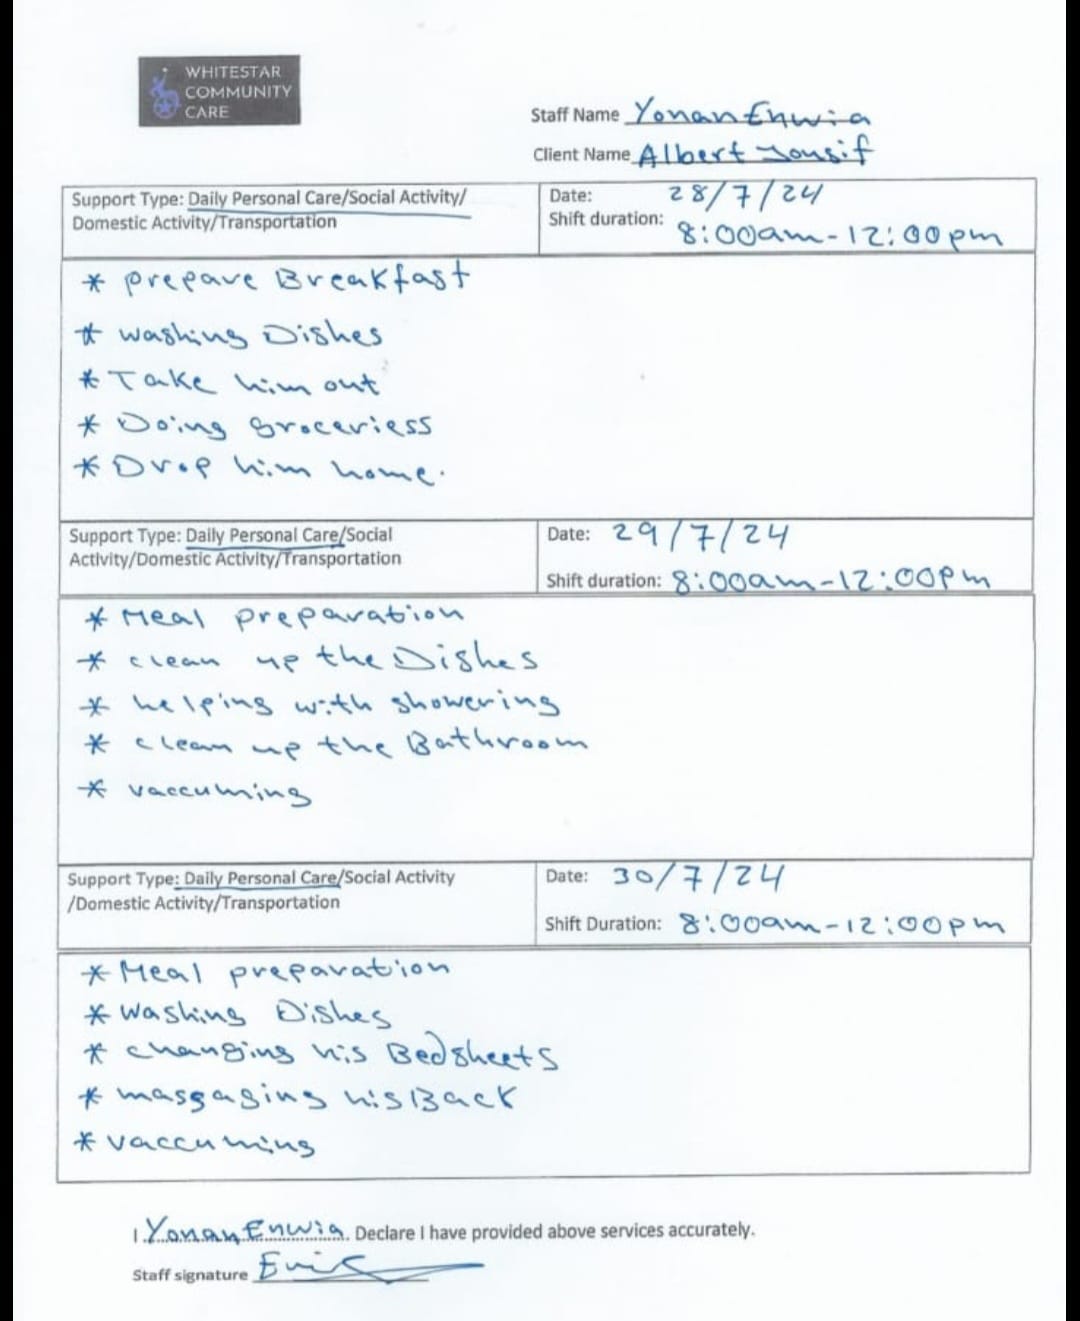 WHITESTAR
COMMUNITY
CARE
Staff Name Yonan Enwia
Client Name Albert Yousif
Support Type: Daily Personal Care/Social Activity/
Domestic Activity/Transportation
Date: 28/7/24
Shift duration: 8:00am-12:00pm
* prepare Breakfast
* washing Dishes
* Take him out
* Doing groceriess
* Drop him home.
Support Type: Daily Personal Care/Social
Activity/Domestic Activity/Transportation
Date: 29/7/24
Shift duration: 8:00am-12:00pm
* Meal preparation
* clean up the Dishes
* helping with showering
* clean up the Bathroom
* vaccuming
Support Type: Daily Personal Care/Social Activity
/Domestic Activity/Transportation
Date: 30/7/24
Shift Duration: 8:00am-12:00pm
* Meal preparation
* washing Dishes
* changing his Bedsheets
* massaging his Back
* vaccuming
I Yonan Enwia. Declare I have provided above services accurately.
Staff signature